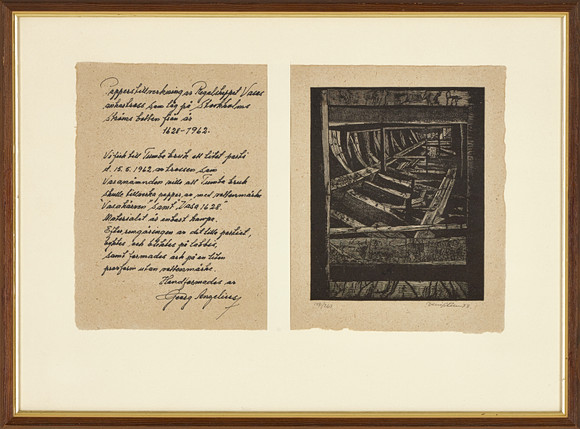 Papperstillverkning av Regalskeppet Vasas
ankartross som låg på Stockholms
ströms botten från år
1628-1962.
Vi fick till Tumba bruk ett litet parti
d. 15.5.1962, av trossen som
Vasanämnden ville att Tumba bruk
skulle tillverka papper av, med vattenmärke
"Vasakärven" samt "Vasa 1628".
Materialet är enbart hampa.
Efter rengöringen av det lilla partiet,
och på
samt formades ark på en liten
provform utan vattenmärke.
Handformades av
Georg Angelires